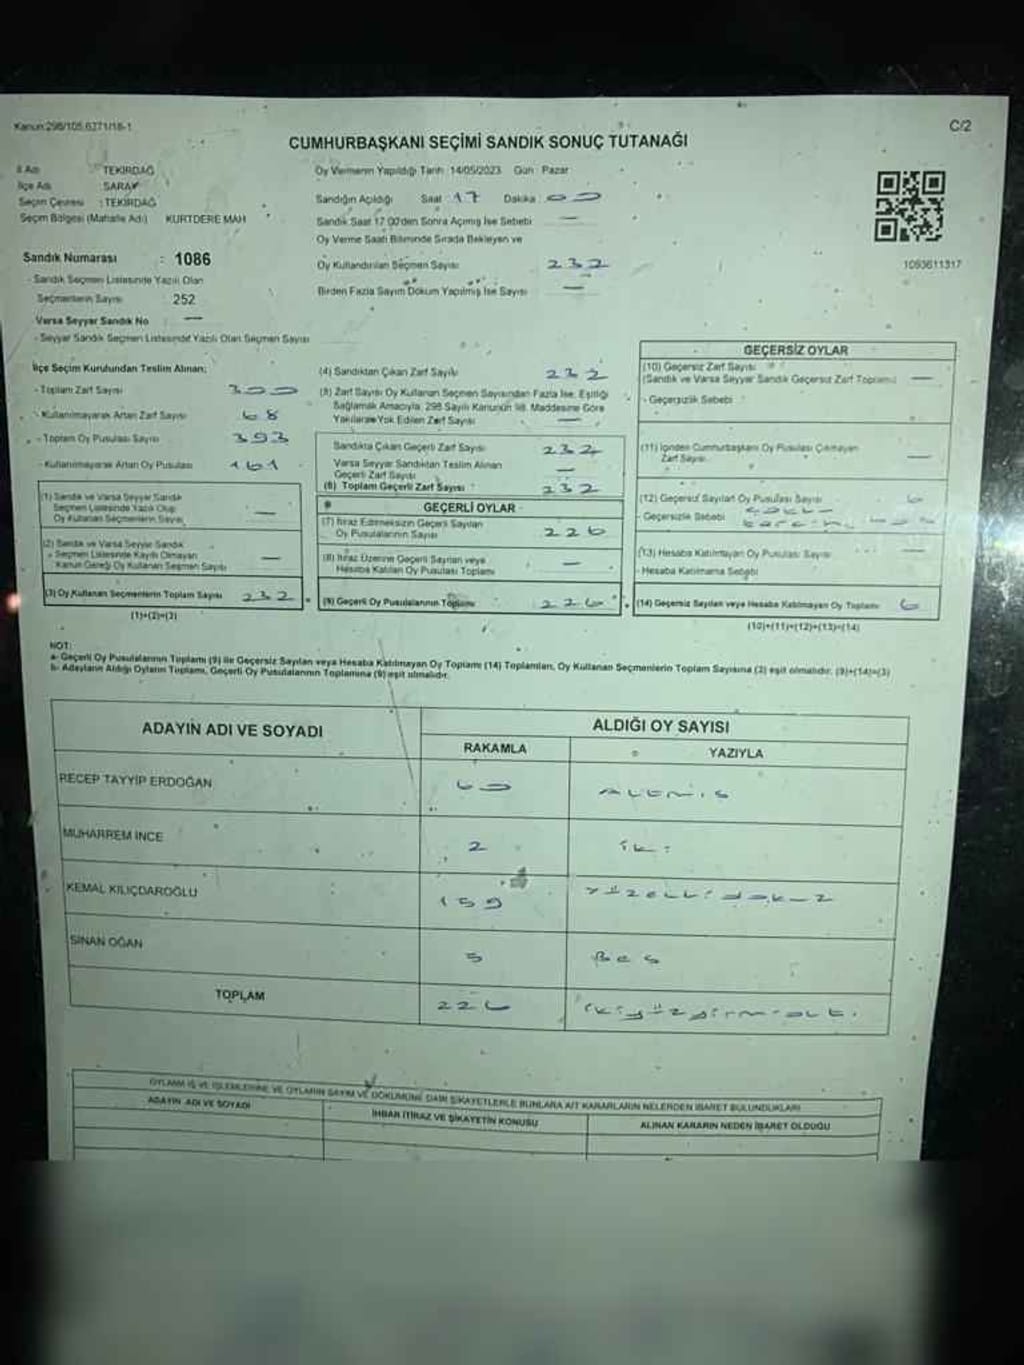 Kanun:298/105,6271/18-1
C/2
CUMHURBAŞKANI SEÇİMİ SANDIK SONUÇ TUTANAĞI
İl Adı : TEKİRDAĞ
İlçe Adı : SARAY
Seçim Çevresi : TEKİRDAĞ
Seçim Bölgesi (Mahalle Adı) KURTDERE MAH
Sandık Numarası : 1086
- Sandık Seçmen Listesinde Yazılı Olan
Seçmenlerin Sayısı 252
Varsa Seyyar Sandık No —
- Seyyar Sandık Seçmen Listesinde Yazılı Olan Seçmen Sayısı
Oy Vermenin Yapıldığı Tarih 14/05/2023 Gün Pazar
Sandığın Açıldığı Saat 17 Dakika 00
Sandık Saat 17:00'den Sonra Açılmış İse Sebebi —
Oy Verme Saati Bitiminde Sırada Bekleyen ve
Oy Kullandırılan Seçmen Sayısı 232
Birden Fazla Sayım Döküm Yapılmış İse Sayısı —
1093611317
İlçe Seçim Kurulundan Teslim Alınan;
- Toplam Zarf Sayısı 300
- Kullanılmayarak Artan Zarf Sayısı 68
- Toplam Oy Pusulası Sayısı 393
- Kullanılmayarak Artan Oy Pusulası 161
(1) Sandık ve Varsa Seyyar Sandık
Seçmen Listesinde Yazılı Olup
Oy Kullanan Seçmenlerin Sayısı —
(2) Sandık ve Varsa Seyyar Sandık
Seçmen Listesinde Kayıtlı Olmayan
Kanun Gereği Oy Kullanan Seçmen Sayısı —
(3) Oy Kullanan Seçmenlerin Toplam Sayısı 232
(1)+(2)=(3)
(4) Sandıktan Çıkan Zarf Sayısı 232
(5) Zarf Sayısı Oy Kullanan Seçmen Sayısından Fazla İse, Eşitliği
Sağlamak Amacıyla, 298 Sayılı Kanunun 98. Maddesine Göre
Yakılarak Yok Edilen Zarf Sayısı —
Sandıkta Çıkan Geçerli Zarf Sayısı 232
Varsa Seyyar Sandıktan Teslim Alınan
Geçerli Zarf Sayısı —
(6) Toplam Geçerli Zarf Sayısı 232
GEÇERLİ OYLAR
(7) İtiraz Edilmeksizin Geçerli Sayılan
Oy Pusulalarının Sayısı 226
(8) İtiraz Üzerine Geçerli Sayılan veya
Hesaba Katılan Oy Pusulası Toplamı —
(9) Geçerli Oy Pusulalarının Toplamı 226
GEÇERSİZ OYLAR
(10) Geçersiz Zarf Sayısı
(Sandık ve Varsa Seyyar Sandık Geçersiz Zarf Toplamı) —
- Geçersizlik Sebebi
(11) İçinden Cumhurbaşkanı Oy Pusulası Çıkmayan
Zarf Sayısı —
(12) Geçersiz Sayılan Oy Pusulası Sayısı 6
- Geçersizlik Sebebi
(13) Hesaba Katılmayan Oy Pusulası Sayısı —
- Hesaba Katılmama Sebebi
(14) Geçersiz Sayılan veya Hesaba Katılmayan Oy Toplamı 6
(10)+(11)+(12)+(13)=(14)
NOT:
a- Geçerli Oy Pusulalarının Toplamı (9) ile Geçersiz Sayılan veya Hesaba Katılmayan Oy Toplamı (14) Toplamları, Oy Kullanan Seçmenlerin Toplam Sayısına (3) eşit olmalıdır. (9)+(14)=(3)
b- Adayların Aldığı Oyların Toplamı, Geçerli Oy Pusulalarının Toplamına (9) eşit olmalıdır.
ADAYIN ADI VE SOYADI
ALDIĞI OY SAYISI
RAKAMLA YAZIYLA
RECEP TAYYİP ERDOĞAN 60 ALTMIŞ
MUHARREM İNCE 2 İKİ
KEMAL KILIÇDAROĞLU 159 YÜZELLİDOKUZ
SİNAN OĞAN 5 BEŞ
TOPLAM 226 İKİYÜZYİRMİALTI
OYLAMA İŞ VE İŞLEMLERİNE VE OYLARIN SAYIM VE DÖKÜMÜNE DAİR ŞİKAYETLERLE BUNLARA AİT KARARLARIN NELERDEN İBARET BULUNDUKLARI
ADAYIN ADI VE SOYADI
İHBAR İTİRAZ VE ŞİKAYETİN KONUSU
ALINAN KARARIN NEDEN İBARET OLDUĞU